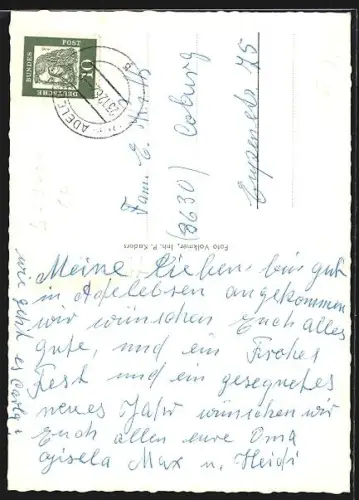 DEUTSCHE
BUNDES
POST
10
ADELE
Fam. E.
(8630) Coburg
75
Foto Volkmar, Inh. F. Knders
Meine Lieben, bin gut
in Adelebsen angekommen
wir wünschen Euch alles
gute, und ein Frohes
Fest und ein gesegnetes
neues Jahr wünschen wir
Euch allen eure Oma
Gisela Max u. Heidi
wie geht es